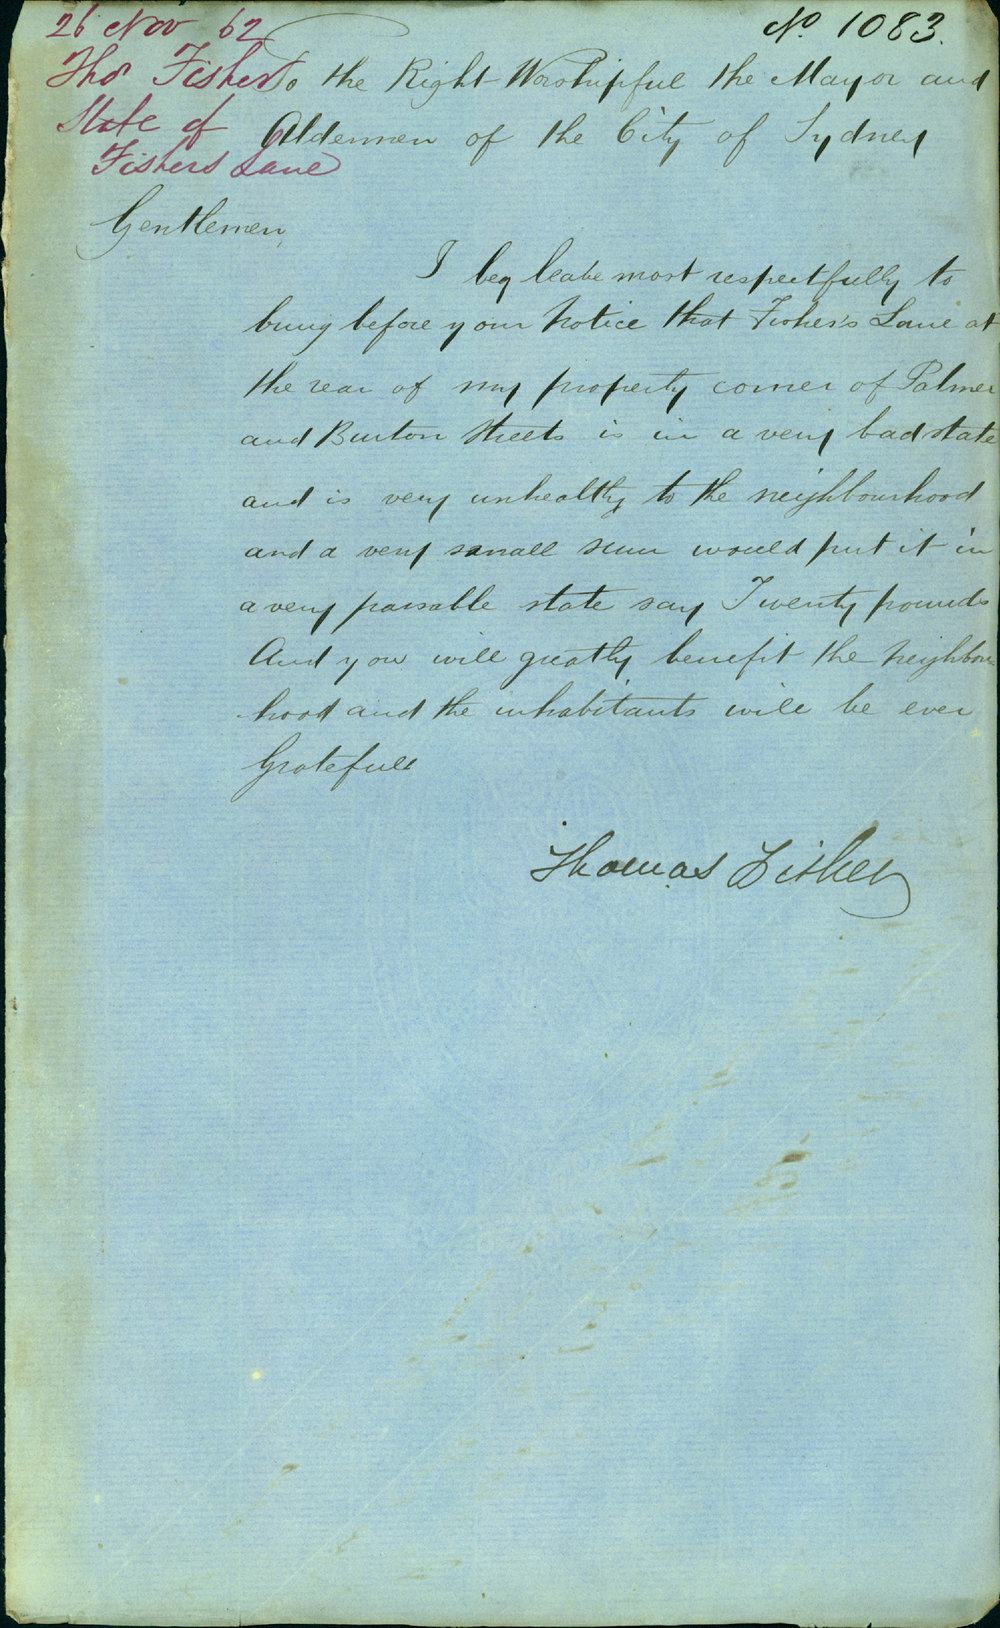 26 Nov 62
Thos Fisher
State of
Fishers Lane
No 1083.
To the Right Worshipful the Mayor and
Aldermen of the City of Sydney
Gentlemen,
I beg leave most respectfully to
bring before your notice that Fisher's Lane at
the rear of my property corner of Palmer
and Burton Streets is in a very bad state
and is very unhealthy to the neighbourhood
and a very small sum would put it in
a very passable state say Twenty pounds
And you will greatly benefit the neighbour
hood and the inhabitants will be ever
Gratefull
Thomas Fisher